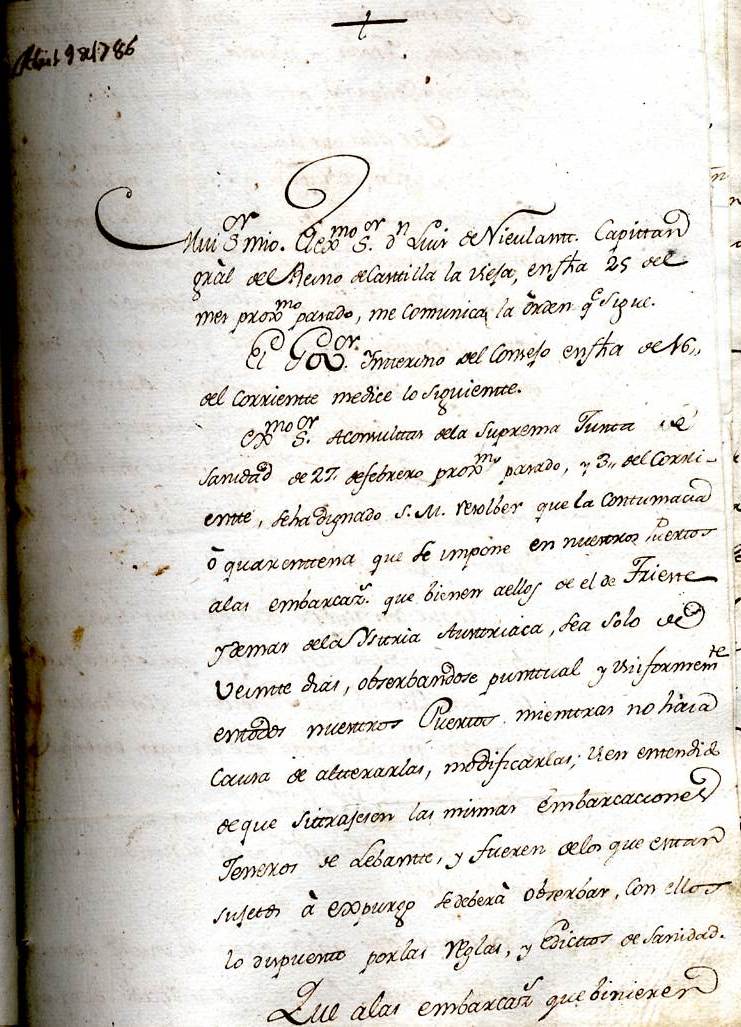 Abril 9 de 1786
Mui Sor mio. El Exmo Sor dn Luis de Nieulantt. Capittan
gràl del Reino de Castilla la vieja, en fha 25 del
mes proxmo pasado, me comunica la òrden qe sigue.
El Gor. Intterino del Consejo en fha de 16,,
del corrientte me dice lo siguientte.
Exmo Sor. A consulttas de la Suprema Juntta de
Sanidad de 27 de febrero proxmo pasado, y 3,, del Corri-
entte, se ha dignado S. M. resolber que la Conttumacia
ò quarenttena que se impone en nuesttros Puerttos
a las embarcazs. que bienen a ellos de el de Triestte
y demas de la Ysttria Austtriaca, sea solo de
Veintte dias, obserbandose punttual y Uniformemte
en ttodos nuesttros Puerttos mienttras no háia
Causa de altterarlas, modificarlas; Y en entendido
de que si ttrajesen las mismas Embarcaciones
Jeneros de Lebantte, y fueren de los que esttan
sujettos à expurgo se deberà obserbar, con ellos
lo dispuestto por las reglas, y Edicttos de Sanidad.
Que a las embarcazs que binieren